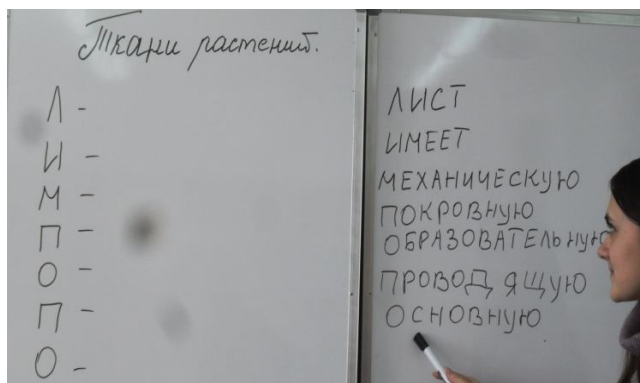 Ткани растений.
Л -
И -
М -
П -
О -
П -
О -
ЛИСТ
ИМЕЕТ
МЕХАНИЧЕСКУЮ
ПОКРОВНУЮ
ОБРАЗОВАТЕЛЬНУЮ
ПРОВОДЯЩУЮ
ОСНОВНУЮ